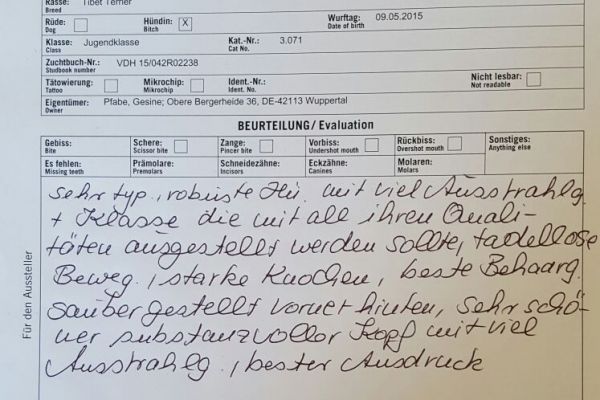 Rasse: Tibet Terrier
Breed
Rüde: Hündin: X Wurftag: 09.05.2015
Dog Bitch Date of birth
Klasse: Jugendklasse Kat.-Nr.: 3.071
Class Cat No.
Zuchtbuch-Nr.: VDH 15/042R02238
Studbook number
Tätowierung: Mikrochip: Ident.-Nr.: Nicht lesbar:
Tattoo Mikrochip Ident. No. Not readable
Eigentümer: Pfabe, Gesine; Obere Bergerheide 36, DE-42113 Wuppertal
Owner
BEURTEILUNG/Evaluation
Gebiss: Schere: Zange: Vorbiss: Rückbiss: Sonstiges:
Bite Scissor bite Pincer bite Undershot mouth Overshot mouth Anything else
Es fehlen: Prämolare: Schneidezähne: Eckzähne: Molaren:
Missing teeth Premolars Incisors Canines Molars
sehr typ., robuste Hü. mit viel Ausstrahlg.
+ Klasse die mit all ihren Quali-
täten ausgestellt werden sollte, tadellose
Beweg., starke Knochen, beste Behaarg.
sauber gestellt vorne + hinten, sehr schö-
ner substanzvoller Kopf mit viel
Ausstrahlg., bester Ausdruck
Für den Aussteller